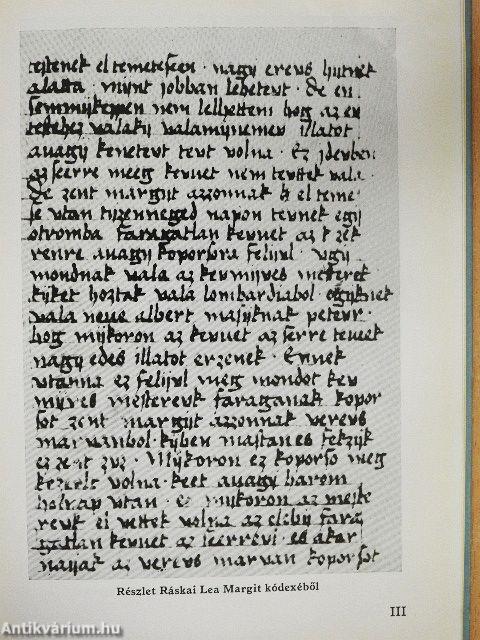 testenek el temeteseen · nagy erevs hyttek
alatta mynt jobban lehetevt · De en
semmykeppen nem lelhettem hog az en
testehez valaky valamynemev illatot
auagy kenetevt tevt volna · Ez ydevben
az seerre meeg kevuet nem tevttek vala ·
De zent margyt azzonnak el teme
se vtan tyzenneged napon tevnek egy
otromba faragatlan kevuet az
renre auagy koporsora felyvl · vgy
mondnak vala az kevmyves mesteret
kyket hoztak vala lombardiabol egyknek
vala neue albert masyknak petevr ·
hog mykoron az kevuet az serre teveek
nagy edes illatot erzenek · Ennek
vtanna ez felyvl meg mondot kev
myves mesterevk faraganak kopor
sot zent margyt azzonnak verevs
marvanbol kyben mastanes fekzyk
ez zent zvz · Mykoron ez koporso meg
kezevlt volna · keet auagy harom
holnap vtan · Es mykoron az meste
revk el vettek volna az elebby fara
gatlan kevuet az seerrevl · es akar
nayak az verevs marvan koporsot
Részlet Ráskai Lea Margit kódexéből
III
Antikvárium.hu